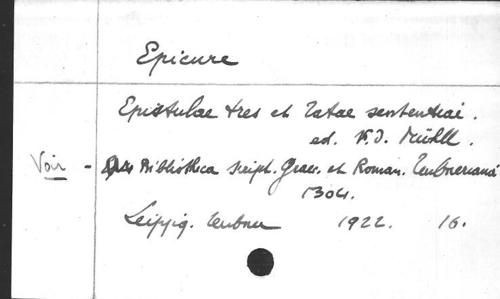 Epicure
Epistulae tres et ratae sententiae.
ed. V.D. Mühll.
Voir - Bibliotheca script. Graec. et Roman. Teubneriana
1304.
Leipzig. Teubner 1922. 16.